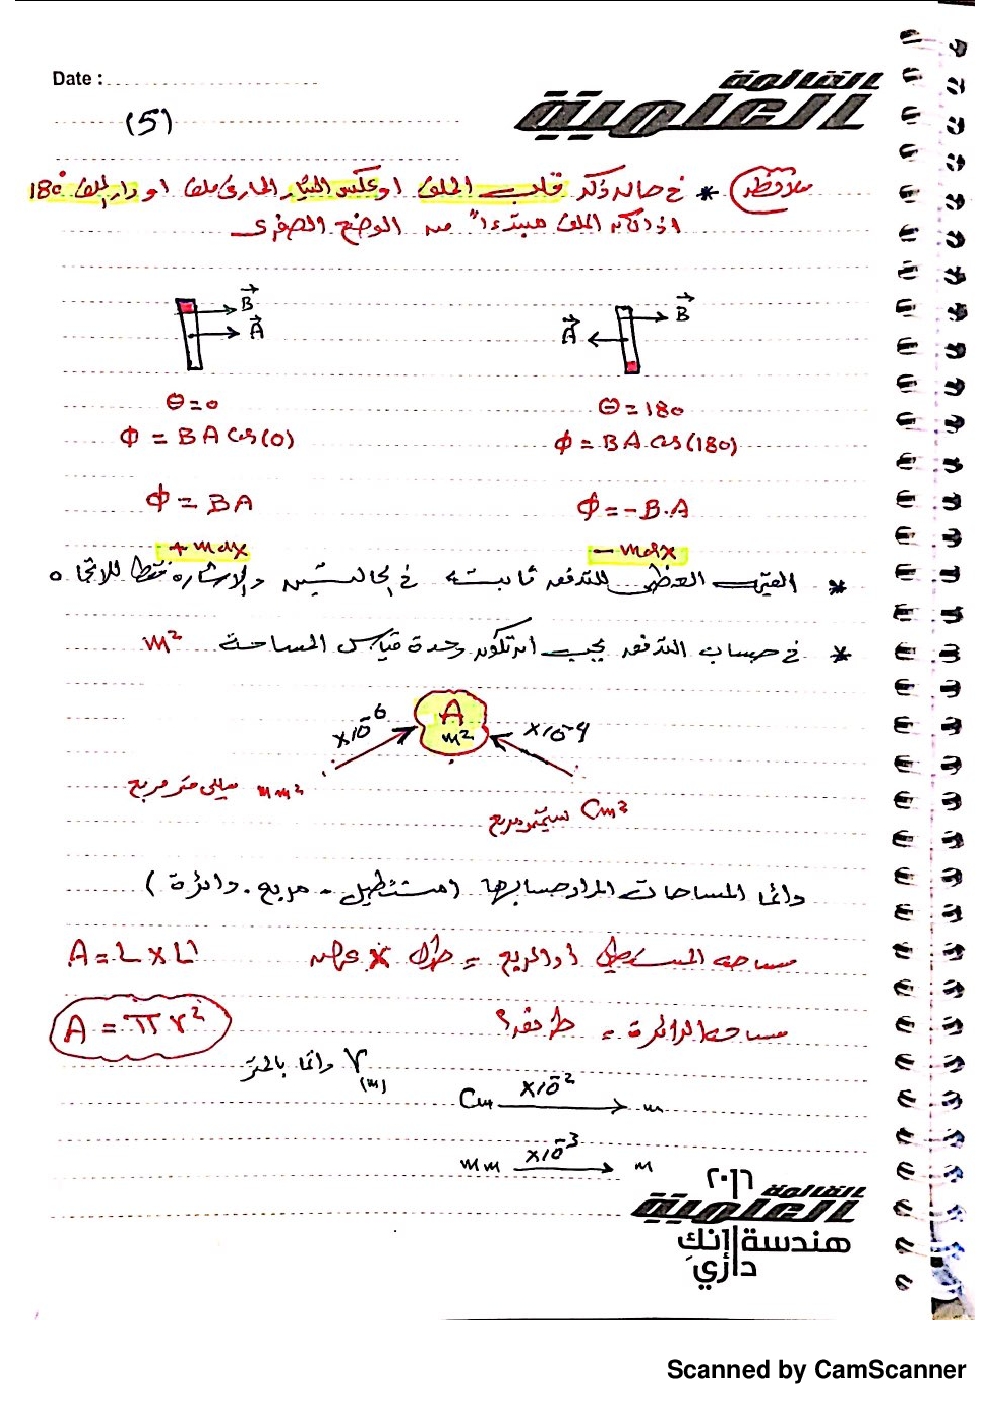 Date :
القائمة
العلمية
(5)
ملاحظة * في حالة ذكر قلب الملف او عكس التيار المار في ملف او دار الملف 180°
اذا كان الملف مبتدءاً من الوضع الصفري
B
A
B
A
Θ=0
Θ=180
Φ = BA Cos(0)
Φ = BA Cos(180)
Φ = BA
Φ = -B.A
+ max
- max
* القيمة العظمى للتدفق ثابتة في الحالتين والاشارة فقط للاتجاه
* في حساب التدفق يجب ان تكون وحدة قياس المساحة m²
A
m²
×10⁻⁶
×10⁻⁴
mm² ميللي متر مربع
Cm² سنتيمتر مربع
دائما المساحات المراد حسابها (مستطيل - مربع - دائرة)
مساحة المستطيل او المربع = طول × عرض
A = L × L'
مساحة الدائرة = ط نق²
A = π r²
r دائما بالمتر
(m)
Cm ×10⁻² m
mm ×10⁻³ m
٢٠١٦
القائمة
العلمية
هندسة إنك
دازي
Scanned by CamScanner